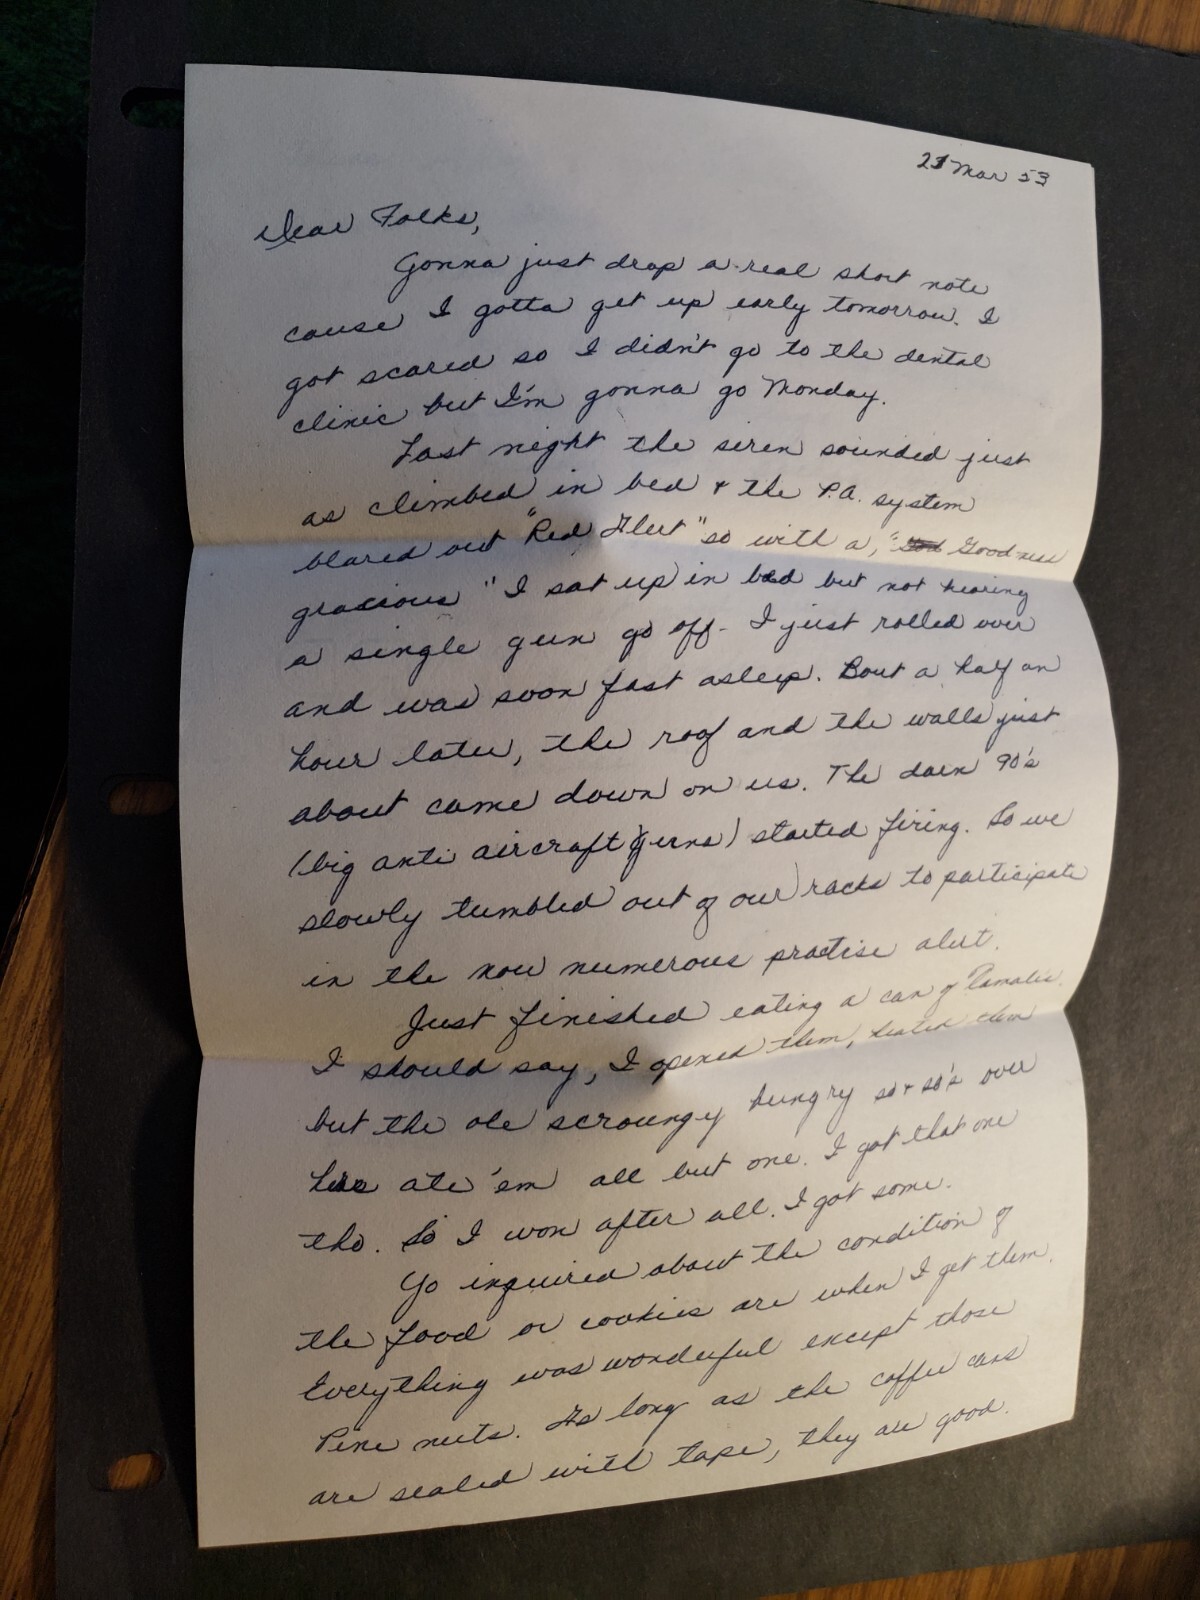 21 Mar 53
Dear Folks,
Gonna just drop a real short note
cause I gotta get up early tomorrow. I
got scared so I didn't go to the dental
clinic but I'm gonna go Monday.
Last night the siren sounded just
as climbed in bed & the P.A. system
blared out "Red Alert" so with a, " Goodness
gracious" I sat up in bed but not hearing
a single gun go off - I just rolled over
and was soon fast asleep. Bout a half an
hour later, the roof and the walls just
about came down on us. The darn 90's
(big anti aircraft guns) started firing. So we
slowly tumbled out of our racks to participate
in the now numerous practise alert.
Just finished eating a can of Tamales.
I should say, I opened them, heated them
but the ole scroungy hungry so & so's over
here ate 'em all but one. I got that one
tho. So I won after all. I got some.
Yo inquired about the condition of
the food or cookies are when I get them.
Everything was wonderful except those
Pine nuts. As long as the coffee cans
are sealed with tape, they are good.